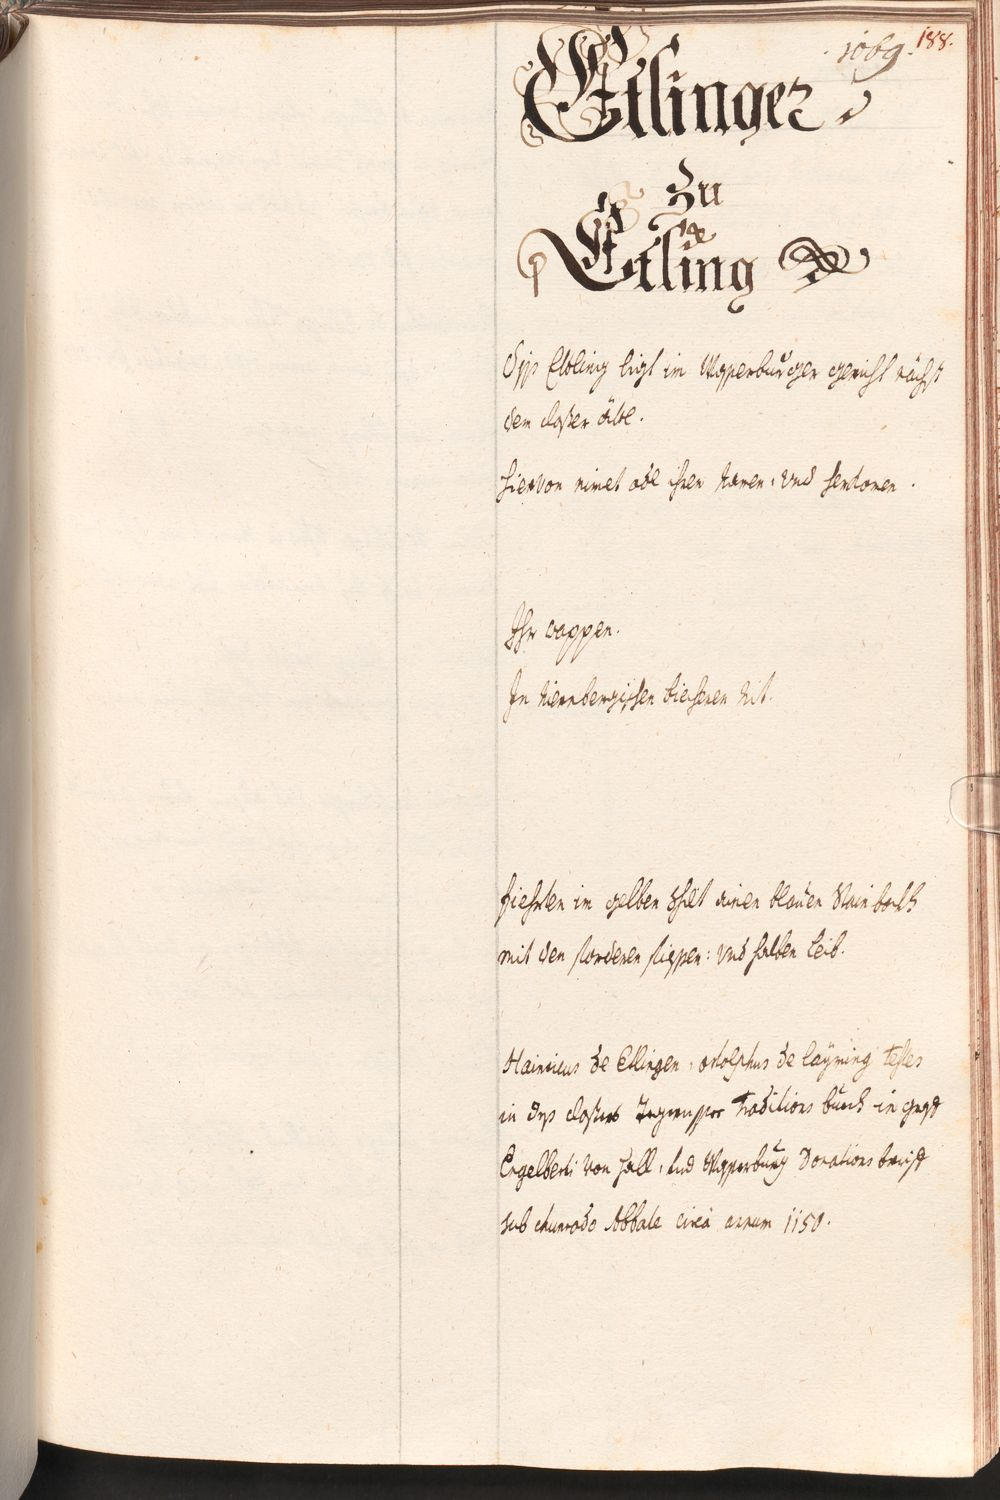 1069. 188.
Etlinger
Zu
Etling
Diss Etling ligt in Wasserburger gericht nächst
dem closter
hiervon nimet ihren namen, und
Ihr wappen.
In Niernbergischen biecheren nit.
fiehrten im gelben schilt einen blauen Stainbockh
mit den forderen fiessen: und halben leib.
Hainricus de Etlingen, Adolphus de laÿming testes
in dess closters Tegernsee Traditions buech in
Engelberti von hall, und Wasserburg Donations
sub chunrado Abbate circa annum 1150.